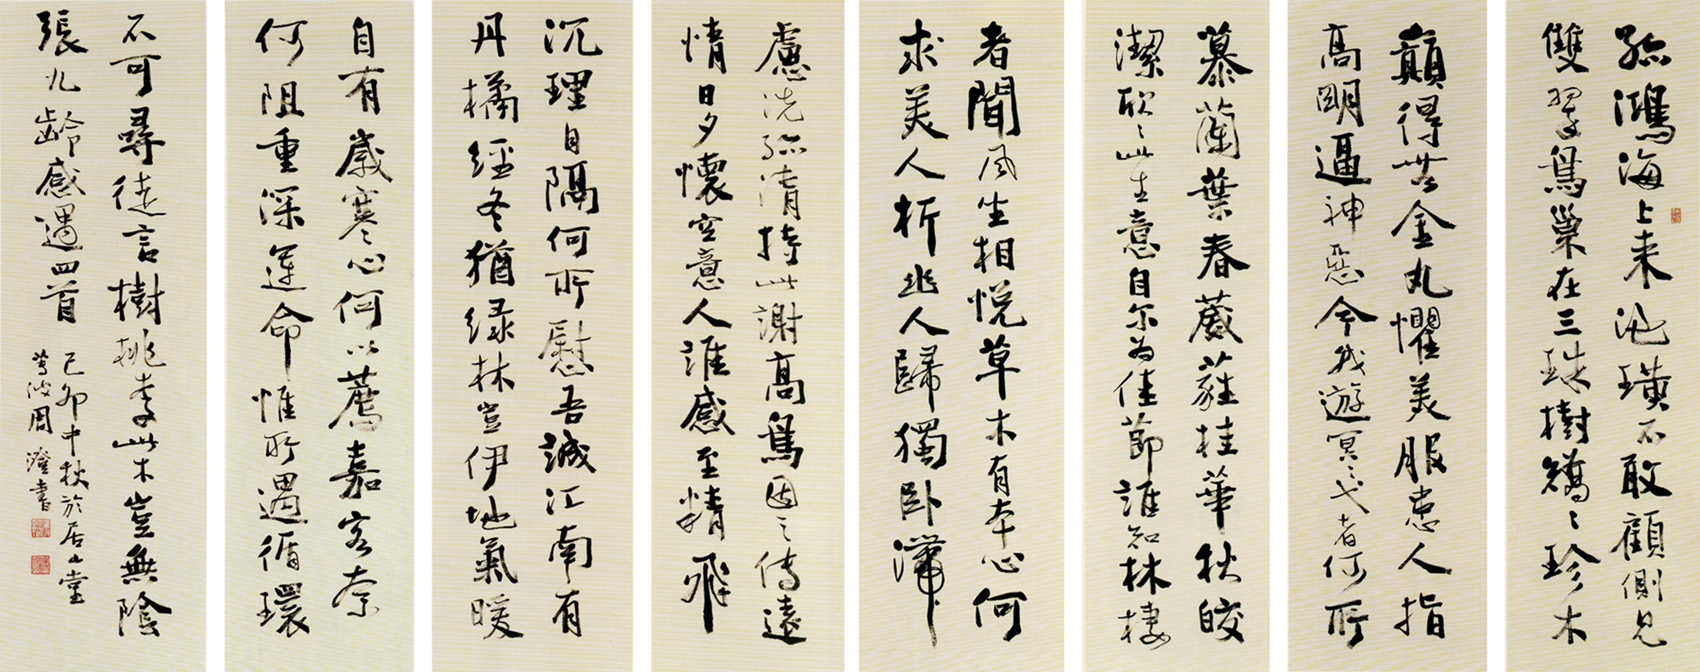 孤鴻海上来池潢不敢顧側見
雙翠鳥巢在三珠樹矯々珍木
巔得無金丸懼美服患人指
高明逼神惡今我遊冥々弋者何所
慕蘭葉春葳蕤桂華秋皎
潔欣々此生意自尔為佳節誰知林棲
者聞風坐相悦草木有本心何
求美人折幽人歸獨卧滯
慮洗孤清持此謝高鳥因之傳遠
情日夕懷空意人誰感至精飛
沉理自隔何所慰吾誠江南有
丹橘經冬猶緑林豈伊地氣暖
自有歲寒心何以薦嘉客奈
何阻重深運命惟所遇循環
不可尋徒言樹桃李此木豈無陰
張九齡感遇四首
己卯中秋於居山堂
周澄書